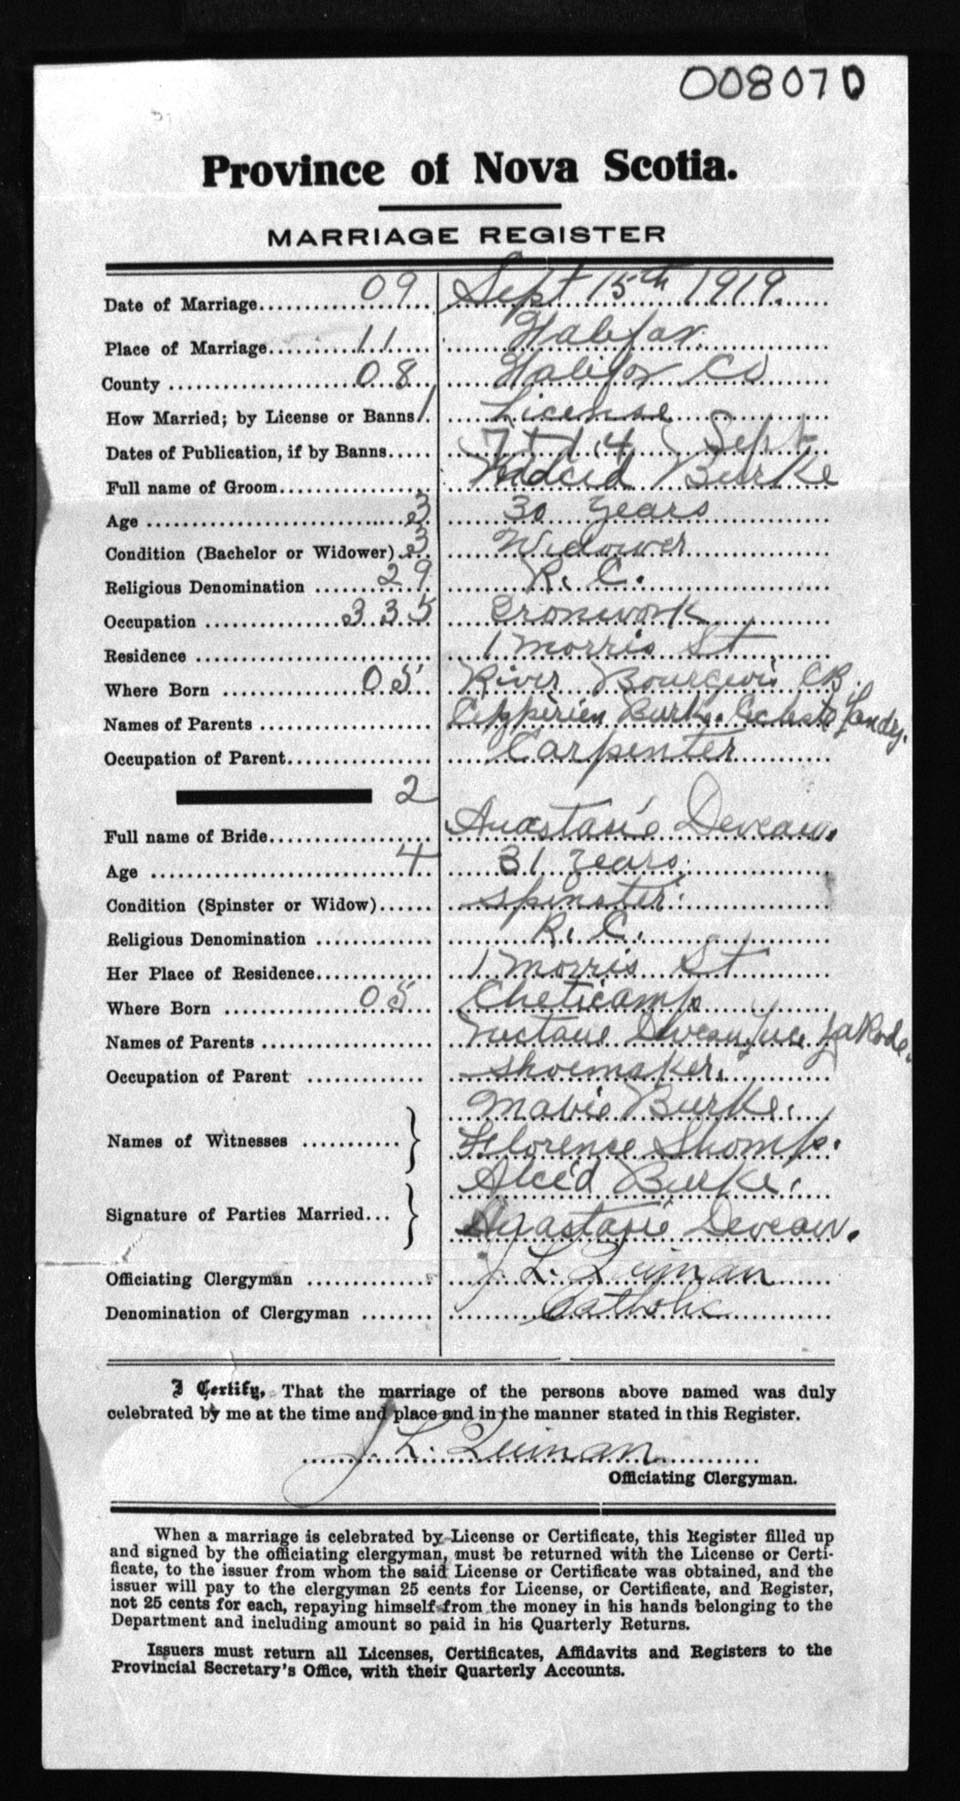 008070
Province of Nova Scotia.
MARRIAGE REGISTER
Date of Marriage 09 Sept 15th 1919.
Place of Marriage 11 Halifax.
County 08 Halifax Co
How Married; by License or Banns 1 License
Dates of Publication, if by Banns 7 + 14 Sept
Full name of Groom Burke
Age 3 30 years
Condition (Bachelor or Widower) 3 Widower
Religious Denomination 29 R. C.
Occupation 335 Ironwork
Residence 1 Morris St
Where Born 05 River Bourgeois CB.
Names of Parents Burke. Landry.
Occupation of Parent Carpenter
2
Full name of Bride Anastasie Deveau.
Age 4 31 years.
Condition (Spinster or Widow) spinster.
Religious Denomination R. C.
Her Place of Residence 1 Morris St
Where Born 05 Cheticamp
Names of Parents Deveau, LaRode.
Occupation of Parent shoemaker.
Marie Burke.
Names of Witnesses Florence Shomp.
Alcid Burke.
Signature of Parties Married... Anastasie Deveau.
Officiating Clergyman J. L. Quinan
Denomination of Clergyman Catholic
I Certify, That the marriage of the persons above named was duly
celebrated by me at the time and place and in the manner stated in this Register.
J. L. Quinan
Officiating Clergyman.
When a marriage is celebrated by License or Certificate, this Register filled up
and signed by the officiating clergyman, must be returned with the License or Certi-
ficate, to the issuer from whom the said License or Certificate was obtained, and the
issuer will pay to the clergyman 25 cents for License, or Certificate, and Register,
not 25 cents for each, repaying himself from the money in his hands belonging to the
Department and including amount so paid in his Quarterly Returns.
Issuers must return all Licenses, Certificates, Affidavits and Registers to the
Provincial Secretary's Office, with their Quarterly Accounts.